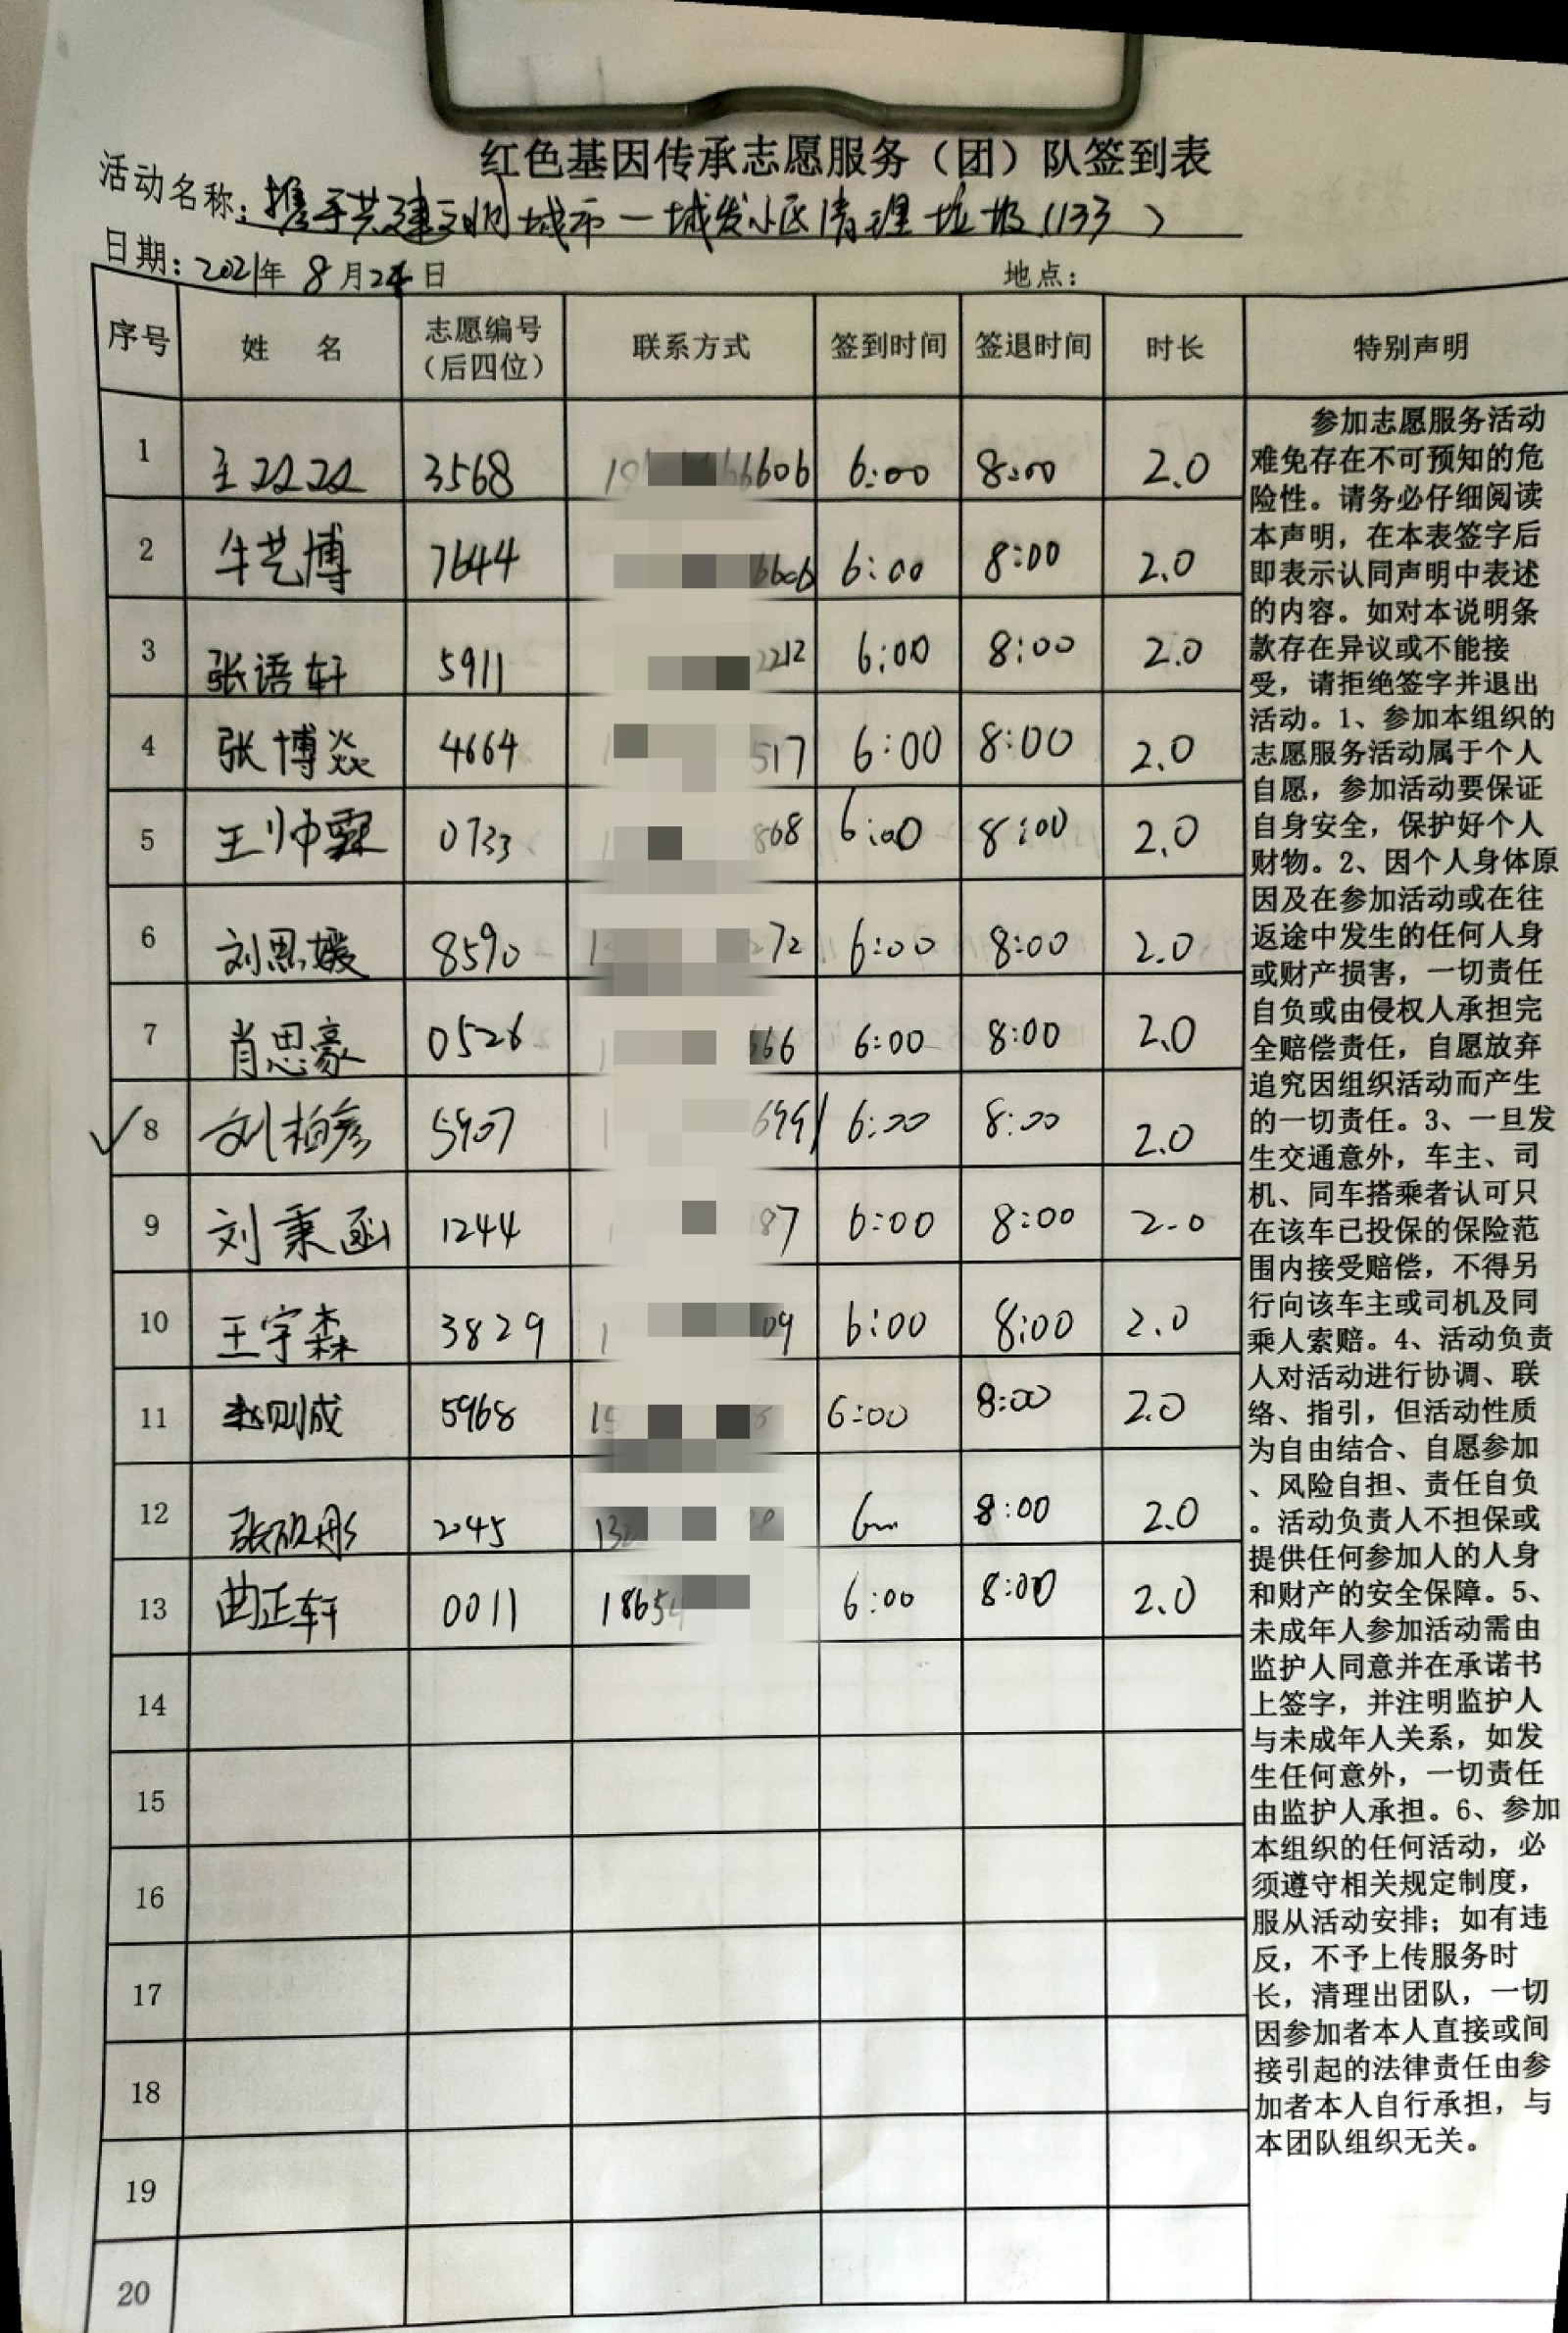 红色基因传承志愿服务（团）队签到表
活动名称：携手共建文明城市一城发小区清理垃圾（133）
日期：2021年8月24日 地点：
序号 姓 名 志愿编号（后四位） 联系方式 签到时间 签退时间 时长 特别声明
1 王 3568 6606 6:00 8:00 2.0
2 牛艺博 7644 6606 6:00 8:00 2.0
3 张语轩 5911 2212 6:00 8:00 2.0
4 张博焱 4664 517 6:00 8:00 2.0
5 王帅霖 0733 868 6:00 8:00 2.0
6 刘思媛 8590 272 6:00 8:00 2.0
7 肖思豪 0526 666 6:00 8:00 2.0
8 刘柏彦 5907 6991 6:00 8:00 2.0
9 刘秉函 1244 87 6:00 8:00 2.0
10 王宇森 3829 09 6:00 8:00 2.0
11 赵则成 5968 15 6:00 8:00 2.0
12 张欣彤 2045 13 8:00 2.0
13 曲正轩 0011 1865 6:00 8:00 2.0
14
15
16
17
18
19
20
参加志愿服务活动
难免存在不可预知的危
险性。请务必仔细阅读
本声明，在本表签字后
即表示认同声明中表述
的内容。如对本说明条
款存在异议或不能接
受，请拒绝签字并退出
活动。1、参加本组织的
志愿服务活动属于个人
自愿，参加活动要保证
自身安全，保护好个人
财物。2、因个人身体原
因及在参加活动或在往
返途中发生的任何人身
或财产损害，一切责任
自负或由侵权人承担完
全赔偿责任，自愿放弃
追究因组织活动而产生
的一切责任。3、一旦发
生交通意外，车主、司
机、同车搭乘者认可只
在该车已投保的保险范
围内接受赔偿，不得另
行向该车主或司机及同
乘人索赔。4、活动负责
人对活动进行协调、联
络、指引，但活动性质
为自由结合、自愿参加
、风险自担、责任自负
。活动负责人不担保或
提供任何参加人的人身
和财产的安全保障。5、
未成年人参加活动需由
监护人同意并在承诺书
上签字，并注明监护人
与未成年人关系，如发
生任何意外，一切责任
由监护人承担。6、参加
本组织的任何活动，必
须遵守相关规定制度，
服从活动安排；如有违
反，不予上传服务时
长，清理出团队，一切
因参加者本人直接或间
接引起的法律责任由参
加者本人自行承担，与
本团队组织无关。